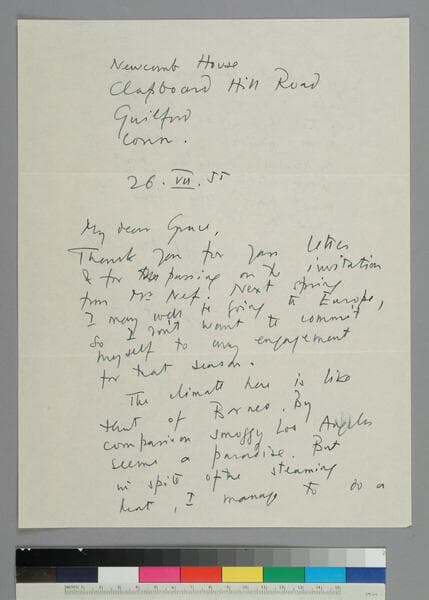 Newcomb House
Clapboard Hill Road
Guilford
Conn.
26. VII. 55
My dear Grace,
Thank you for your letter
& for passing on the invitation
from Mr Nef. Next spring
I may well be going to Europe,
so I don't want to commit
myself to any engagement
for that season.
The climate here is like
that of Borneo. By
comparison smoggy Los Angeles
seems a paradise. But
in spite of the steaming
heat, I manage to do a